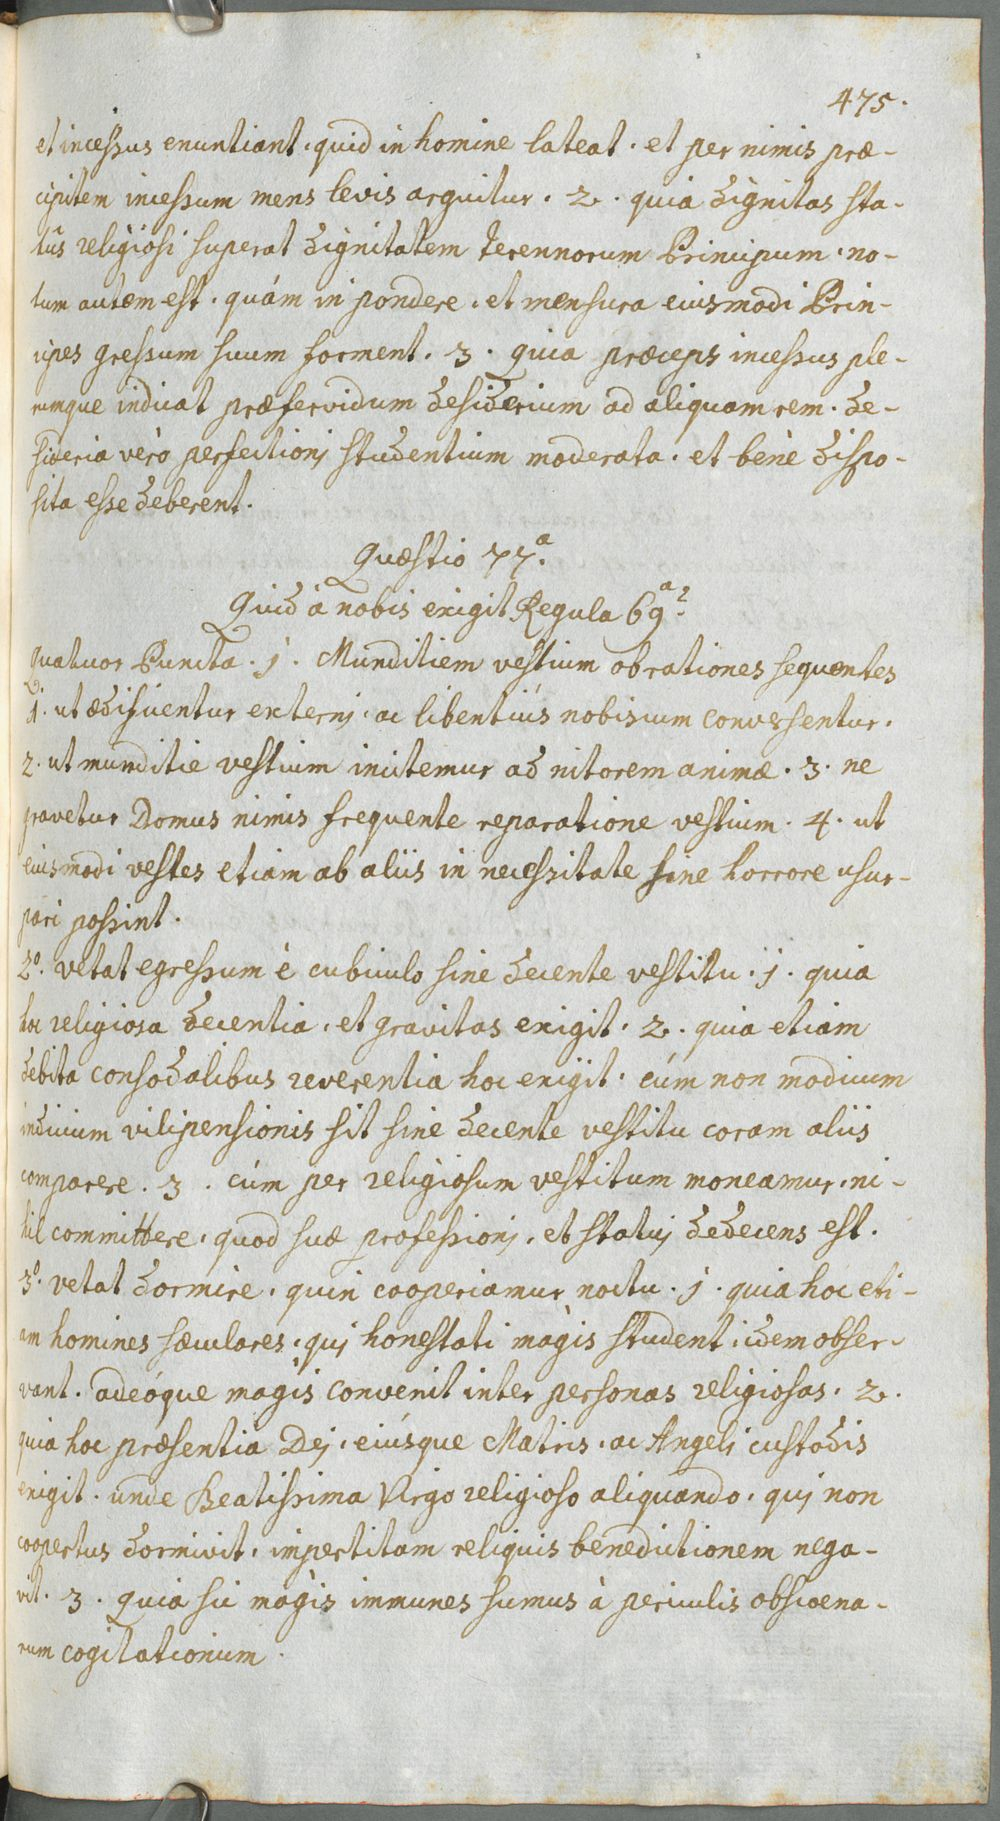 475.
et incessus enuntiant, quid in homine lateat, et per nimis præ-
cipitem incessum mens levis arguitur. 2. quia dignitas sta-
tûs religiosi superat dignitatem terennorum Principum, no-
tum autem est, quám in pondere, et mensura eiusmodi Prin-
cipes gressum suum forment. 3. quia præceps incessus ple-
rumque indicat præfervidum desiderium ad aliquam rem. de-
sideria verò perfectionj studentium moderata, et benè dispo-
sita esse deberent.
Quæstio 77.a
Quid à nobis exigit Regula 69a?
Quatuor Puncta. 1. Munditiem vestium ob rationes sequentes
1. ut ædificentur externj, ac libentiùs nobiscum conversentur.
2. ut munditie vestium incitemur ad nitorem animæ. 3. ne
gravetur Domus nimis frequente reparatione vestium. 4. ut
eiusmodi vestes etiam ab aliis in necessitate sine horrore usur-
pari possint.
2o. vetat egressum è cubiculo sine decente vestitu. 1. quia
hoc religiosa decentia, et gravitas exigit. 2. quia etiam
debita consodalibus reverentia hoc exigit. cúm non modicum
indicium vilipensionis sit sine decente vestitu coram aliis
comparere. 3. cúm per religiosum vestitum moneamur, ni-
hil committere, quod suæ professionj, et statuj dedecens est.
3o. vetat dormire, quin cooperiamur noctu. 1. quia hoc eti-
am homines sæculares, quj honestati magis student, idem obser-
vant. adeóque magis convenit inter personas religiosas. 2.
quia hoc præsentia Dej, eiúsque Matris, ac Angelj custodis
exigit. unde Beatissima Virgo religioso aliquando, quj non
coopertus dormivit, impertitam reliquis benedictionem nega-
vit. 3. quia sic magis immunes sumus à periculis obscœna-
rum cogitationum.